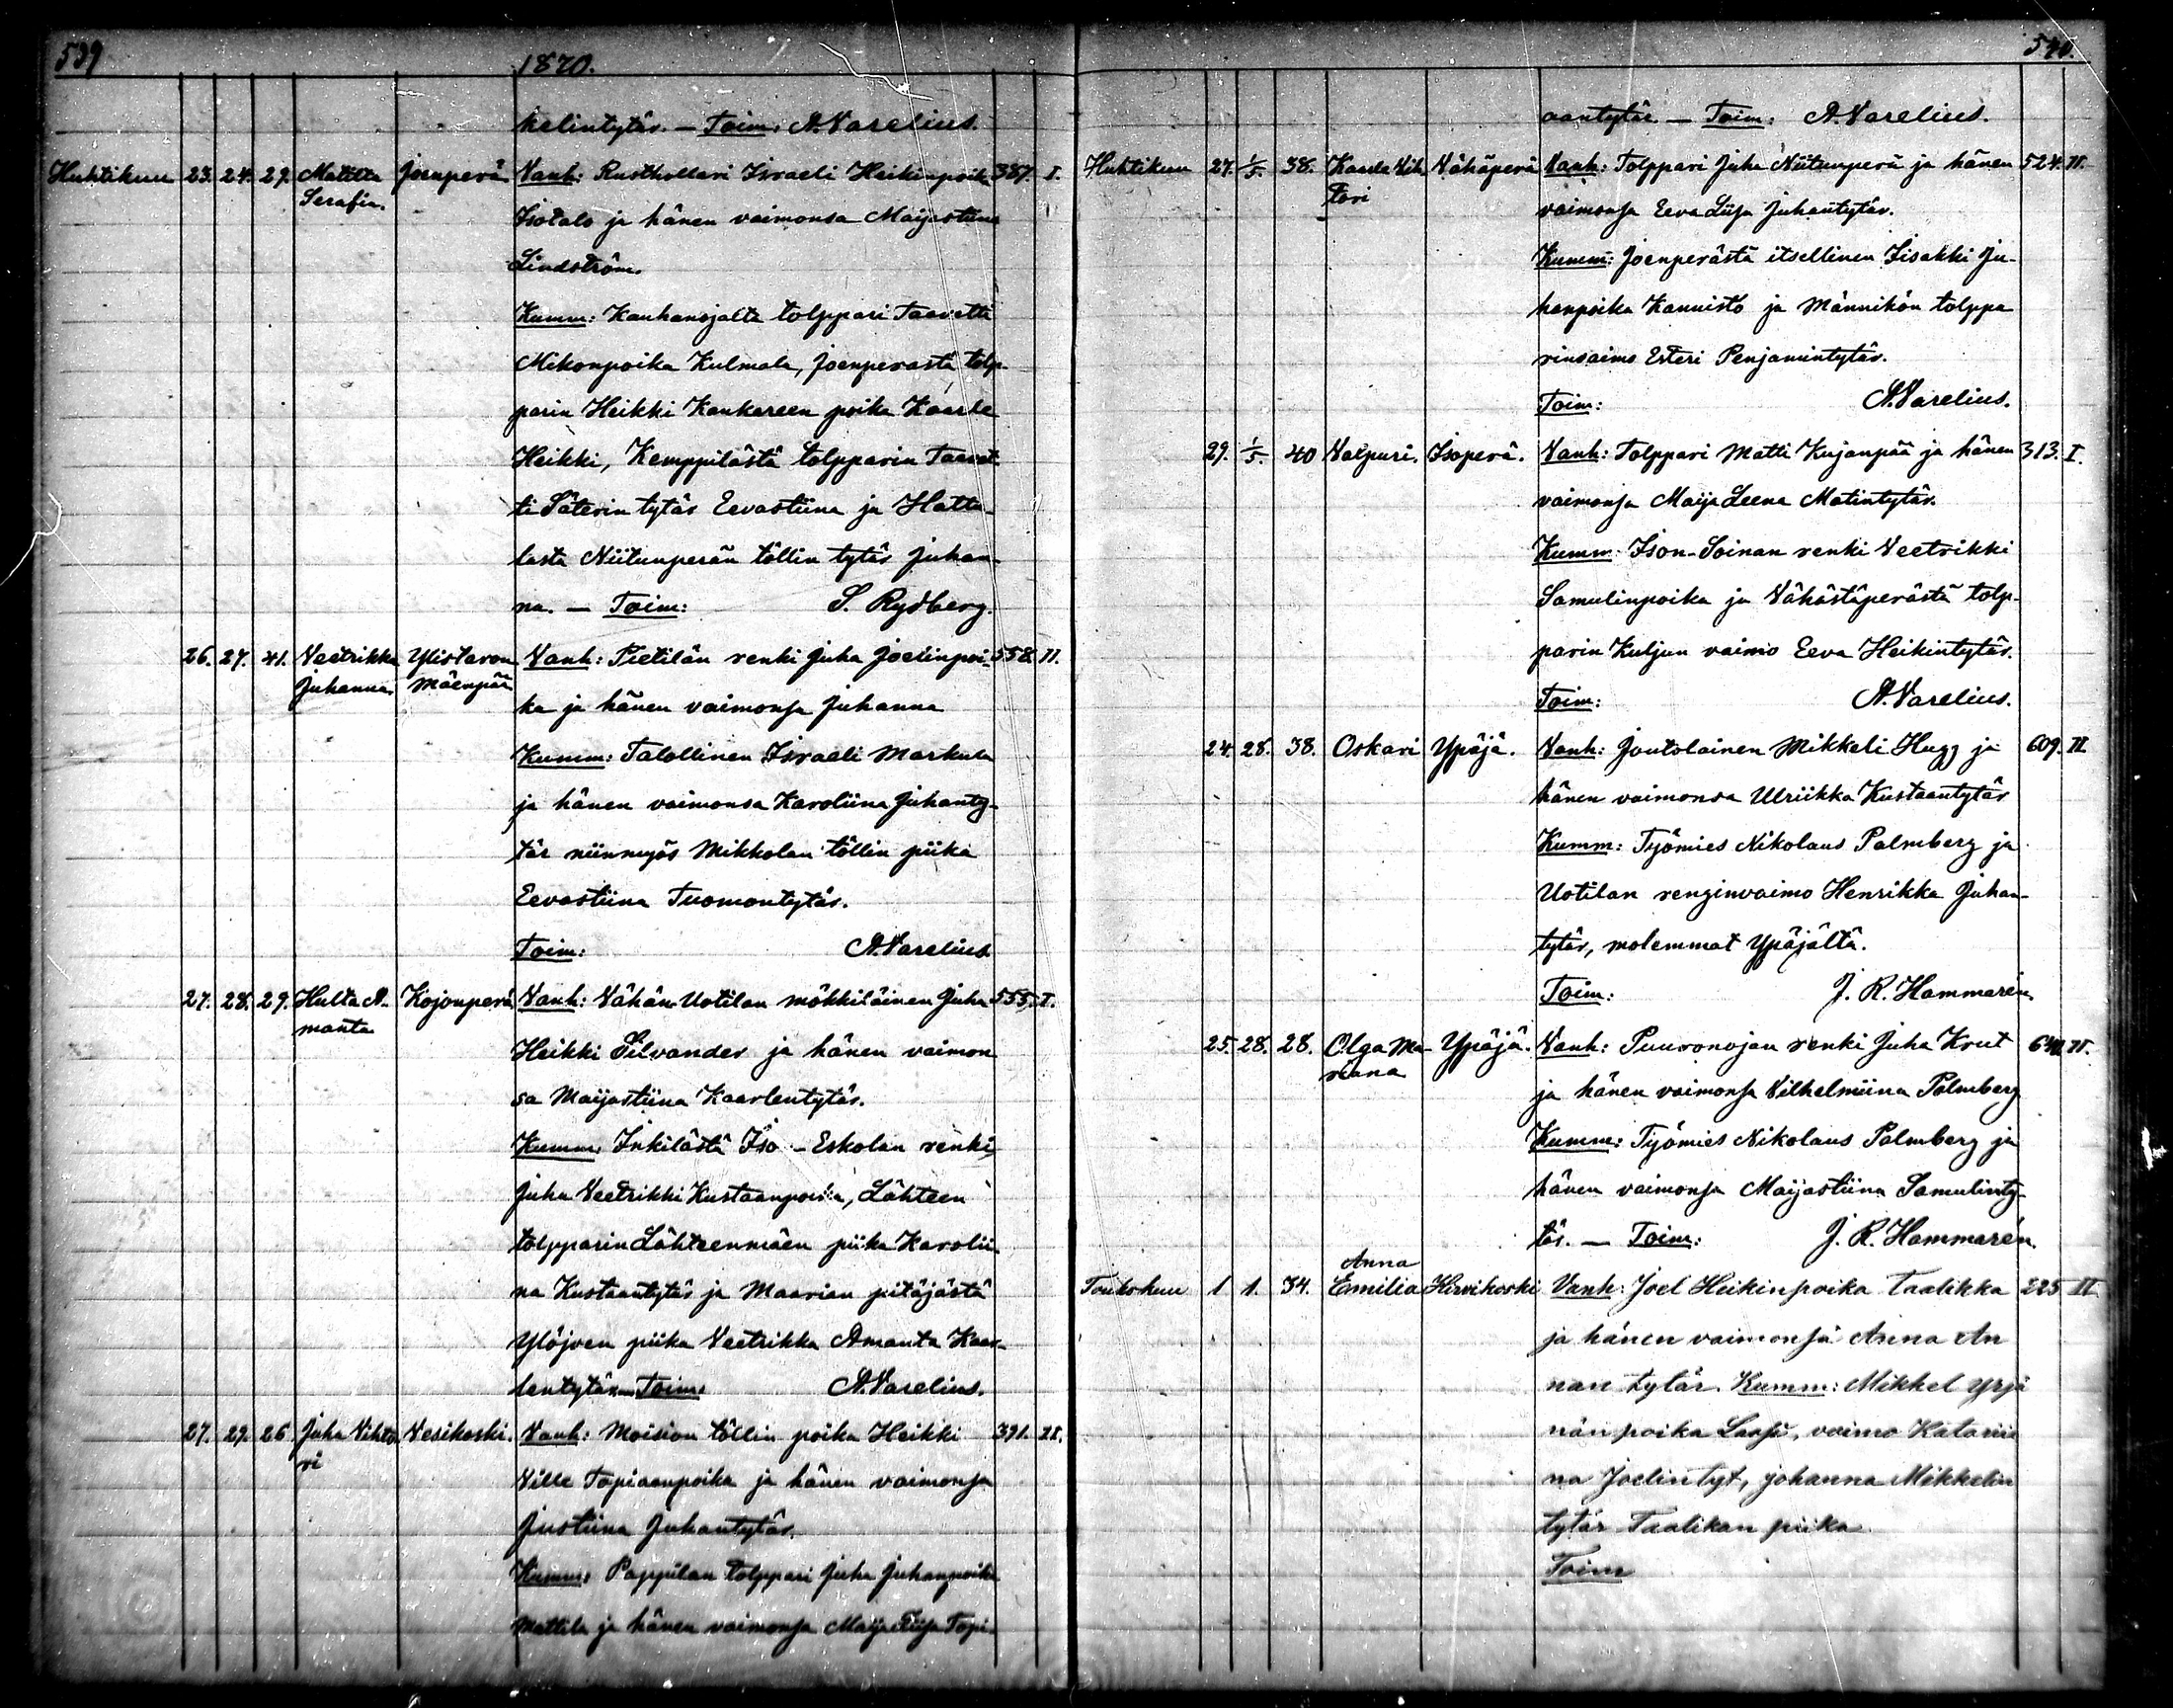 539
1870.
helintytär. — Toim: A. Varelius.
Huhtikuu 23. 24. 29. Matilta Joenperä Vanh: Rusthollari Israeli Heikinpoika 387. I.
Serafia. Isotalo ja hänen vaimonsa Maijastiina
Lindström.
Kumm: Kauhanojalta tolppari Taavetti
Mikonpoika Kulmala, Joenperästä tolp-
parin Heikki Kankareen poika Kaarle
Heikki, Kemppilästä tolpparin Taavet-
ti Säterin tytär Eevastiina ja Hatta-
lasta Niitunperän töllin tytär Juhan-
na. — Toim: S. Rydberg.
26. 27. 41. Veetrikka Ylistaron Vanh: Pietilän renki Juha Joelinpoi- 558. II.
Juhanna. Mäenpää ka ja hänen vaimonsa Juhanna
Kumm: Talollinen Israeli Markula
ja hänen vaimonsa Karoliina Juhanty-
tär niinmyös Mikkolan töllin piika
Eevastiina Tuomontytär.
Toim: A. Varelius
27. 28. 29. Hulta A- Kojonperä Vanh: Vähän Uotilan mökkiläinen Juha 555. I.
manta Heikki Silvander ja hänen vaimon
sa Maijastiina Kaarlentytär.
Kumm: Inkilästä Iso-Eskolan renki
Juha Veetrikki Kustaanpoika, Lähteen
tolpparin Lähteenmäen piika Karolii-
na Kustaantytär ja Maarian pitäjästä
Ylöjoen piika Veetrikka Amanta Kaar-
lentytär — Toim: A. Varelius.
27. 29. 26. Juha Vihto- Vesikoski. Vanh: Moision töllin poika Heikki 391. II.
ri Ville Topiaanpoika ja hänen vaimonsa
Justiina Juhantytär.
Kumm: Pappilan tolppari Juha Juhanpoika
Mattila ja hänen vaimonsa Maija Liisa Topi-
540.
aantytär — Toim: A. Varelius.
Huhtikuu 27. 1/5. 38. Kaarle Vih- Vähäperä Vanh: Tolppari Juha Niitunperä ja hänen 524. II.
tori vaimonsa Eeva Liisa Juhantytär.
Kumm: Joenperästä itsellinen Iisakki Ju-
hanpoika Kannisto ja Männikön tolppa
rinvaimo Esteri Penjamintytär.
Toim: A. Varelius.
29. 1/5. 40 Valpuri. Isoperä. Vanh: Tolppari Matti Kujanpää ja hänen 313. I.
vaimonsa Maija Leena Matintytär.
Kumm: Ison-Soinan renki Veetrikki
Samulinpoika ja Vähästäperästä tolp-
parin Kuljun vaimo Eeva Heikintytär.
Toim: A. Varelius.
24. 28. 38. Oskari Ypäjä. Vanh: Joutolainen Mikkeli Hugg ja 609. II
hänen vaimonsa Ulriikka Kustaantytär
Kumm: Työmies Nikolaus Palmberg ja
Uotilan renginvaimo Henrikka Juhan-
tytär, molemmat Ypäjältä.
Toim: J. R. Hammarén.
25. 28. 28. Olga Ma- Ypäjä. Vanh: Puuronojan renki Juha Krut II.
riana ja hänen vaimonsa Vilhelmiina Palmberg
Kumm: Työmies Nikolaus Palmberg ja
hänen vaimonsa Maijastiina Samulinty-
tär. — Toim: J. R. Hammarén.
Anna
Toukokuu 1 1. 34. Emilia Hirvikoski Vanh: Joel Heikinpoika Taalikka 225 II
ja hänen vaimonsa Anna An
nan tytär. Kumm: Mikkel Yrjö
nän poika Laasi, vaimo Katarii
na Joelin tyt, Johanna Mikkelin
tytär Taalikan piika
Toim